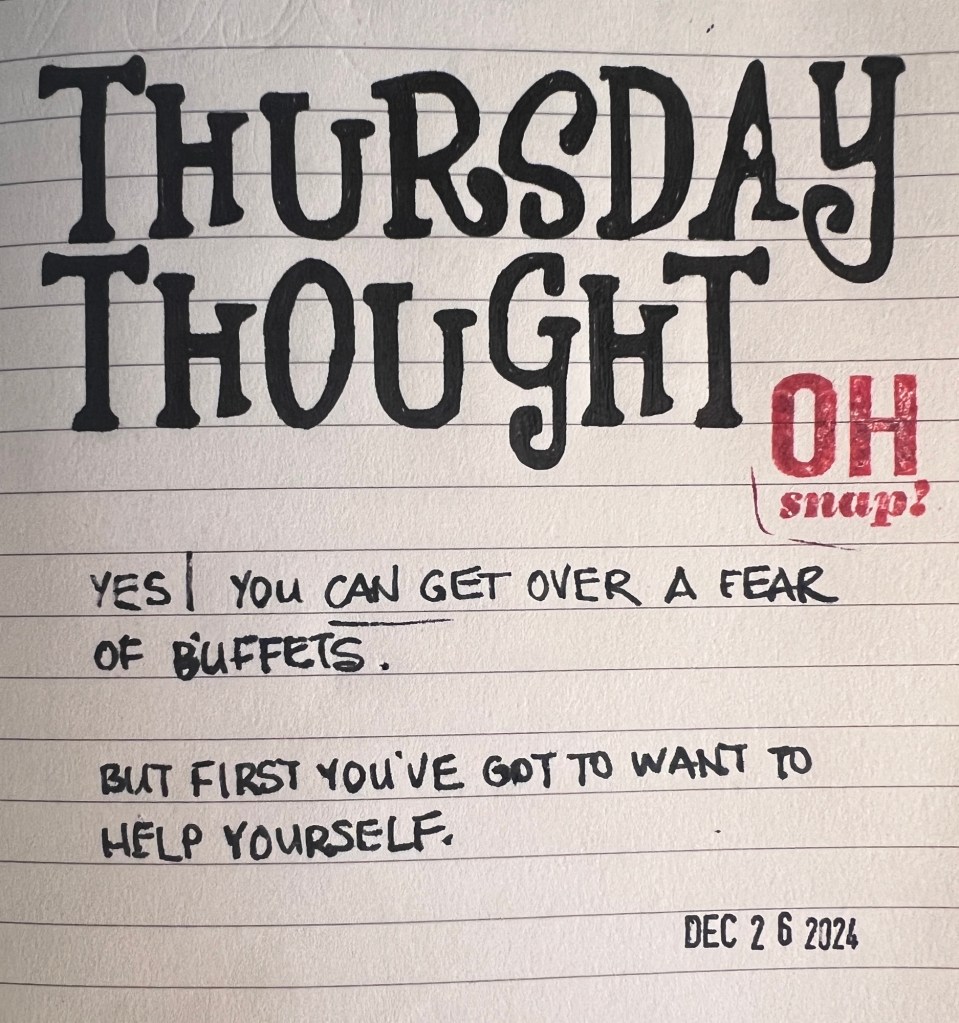 THURSDAY
THOUGHT
OH
snap!
YES| YOU CAN GET OVER A FEAR
OF BUFFETS.
BUT FIRST YOU'VE GOT TO WANT TO
HELP YOURSELF.
DEC 26 2024